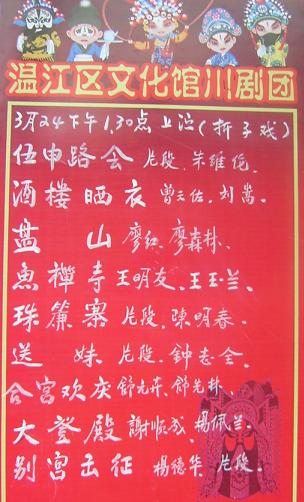 温江区文化馆川剧团
3月24下午1.30点上泣(折子戏)
伍申路会 片段、朱维伦、
酒楼晒衣 曾三佐、刘嵩。
盐山 廖红、廖森林、
鱼禅寺 王明友、王玉兰、
珠簾寨 片段、陳明春、
送妹 片段、鐘志全、
合宫欢庆 舒光荣、舒光林、
大登殿 謝順成、楊佩兰、
别宫出征 楊德华、片段、